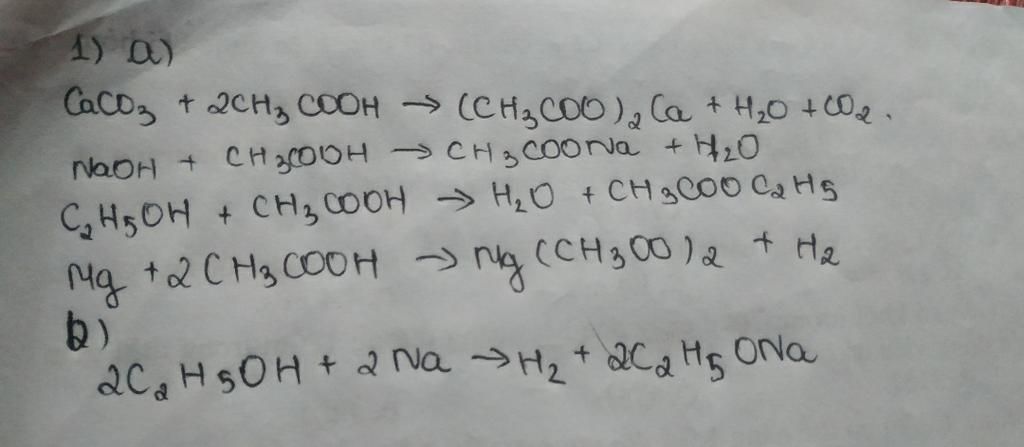 1) a)
CaCO₃ + 2CH₃COOH → (CH₃COO)₂Ca + H₂O + CO₂.
NaOH + CH₃COOH → CH₃COONa + H₂O
C₂H₅OH + CH₃COOH → H₂O + CH₃COOC₂H₅
Mg + 2CH₃COOH → Mg(CH₃OO)₂ + H₂
b)
2C₂H₅OH + 2Na → H₂ + 2C₂H₅ONa